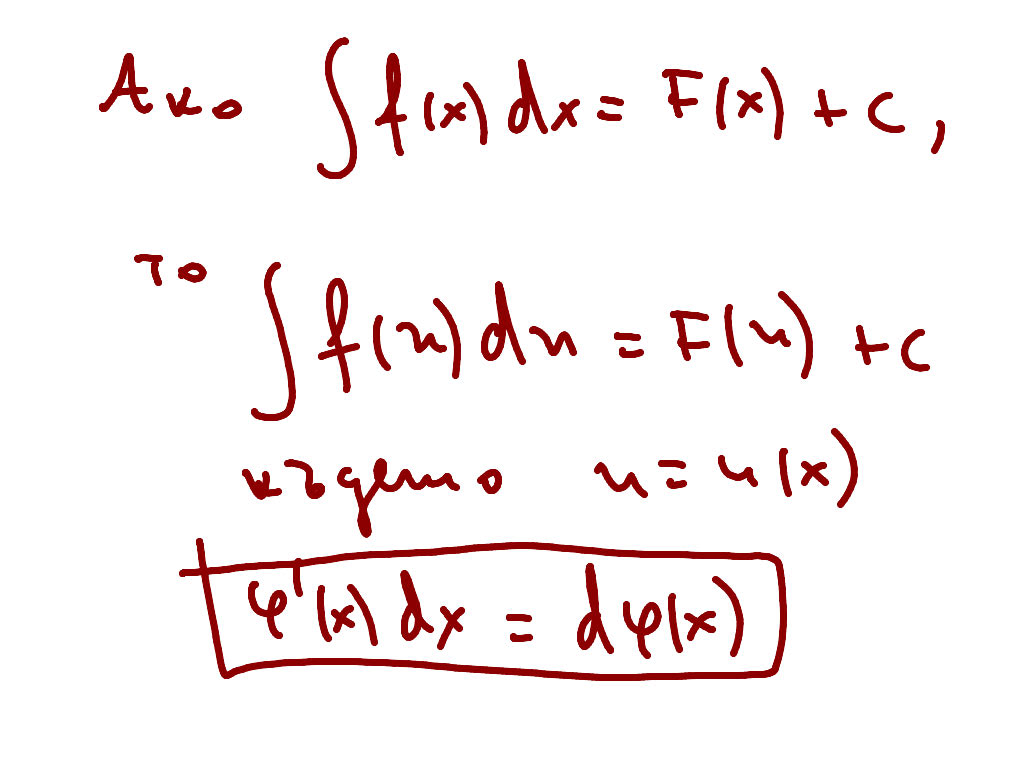 Ако ∫f(x)dx = F(x) + c,
то ∫f(u)du = F(u) + c
където u = u(x)
φ'(x)dx = dφ(x)